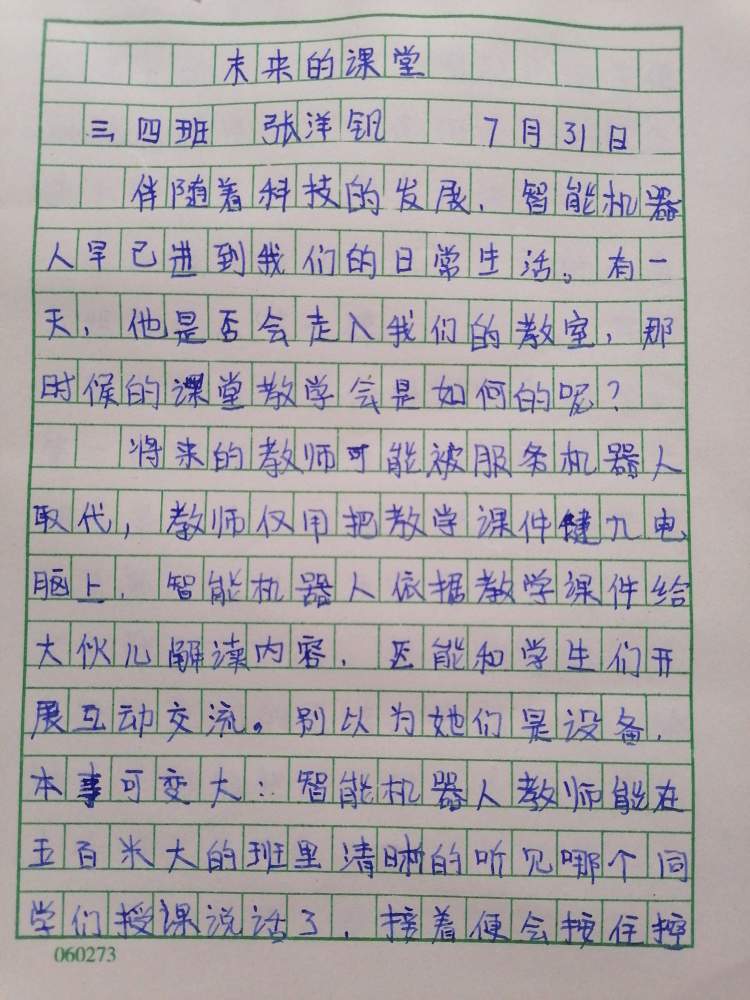 未来的课堂
三四班 张洋钒 7月31日
伴随着科技的发展,智能机器
人早已进到我们的日常生活。有一
天,他是否会走入我们的教室,那
时候的课堂教学会是如何的呢?
将来的教师可能被服务机器人
取代,教师仅用把教学课件键九电
脑上,智能机器人依据教学课件给
大伙儿解读内容,还能和学生们开
展互动交流。别以为她们是设备,
本事可变大:智能机器人教师能在
五百米大的班里清晰的听见哪个同
学们授课说话了,接着便会按住控
060273